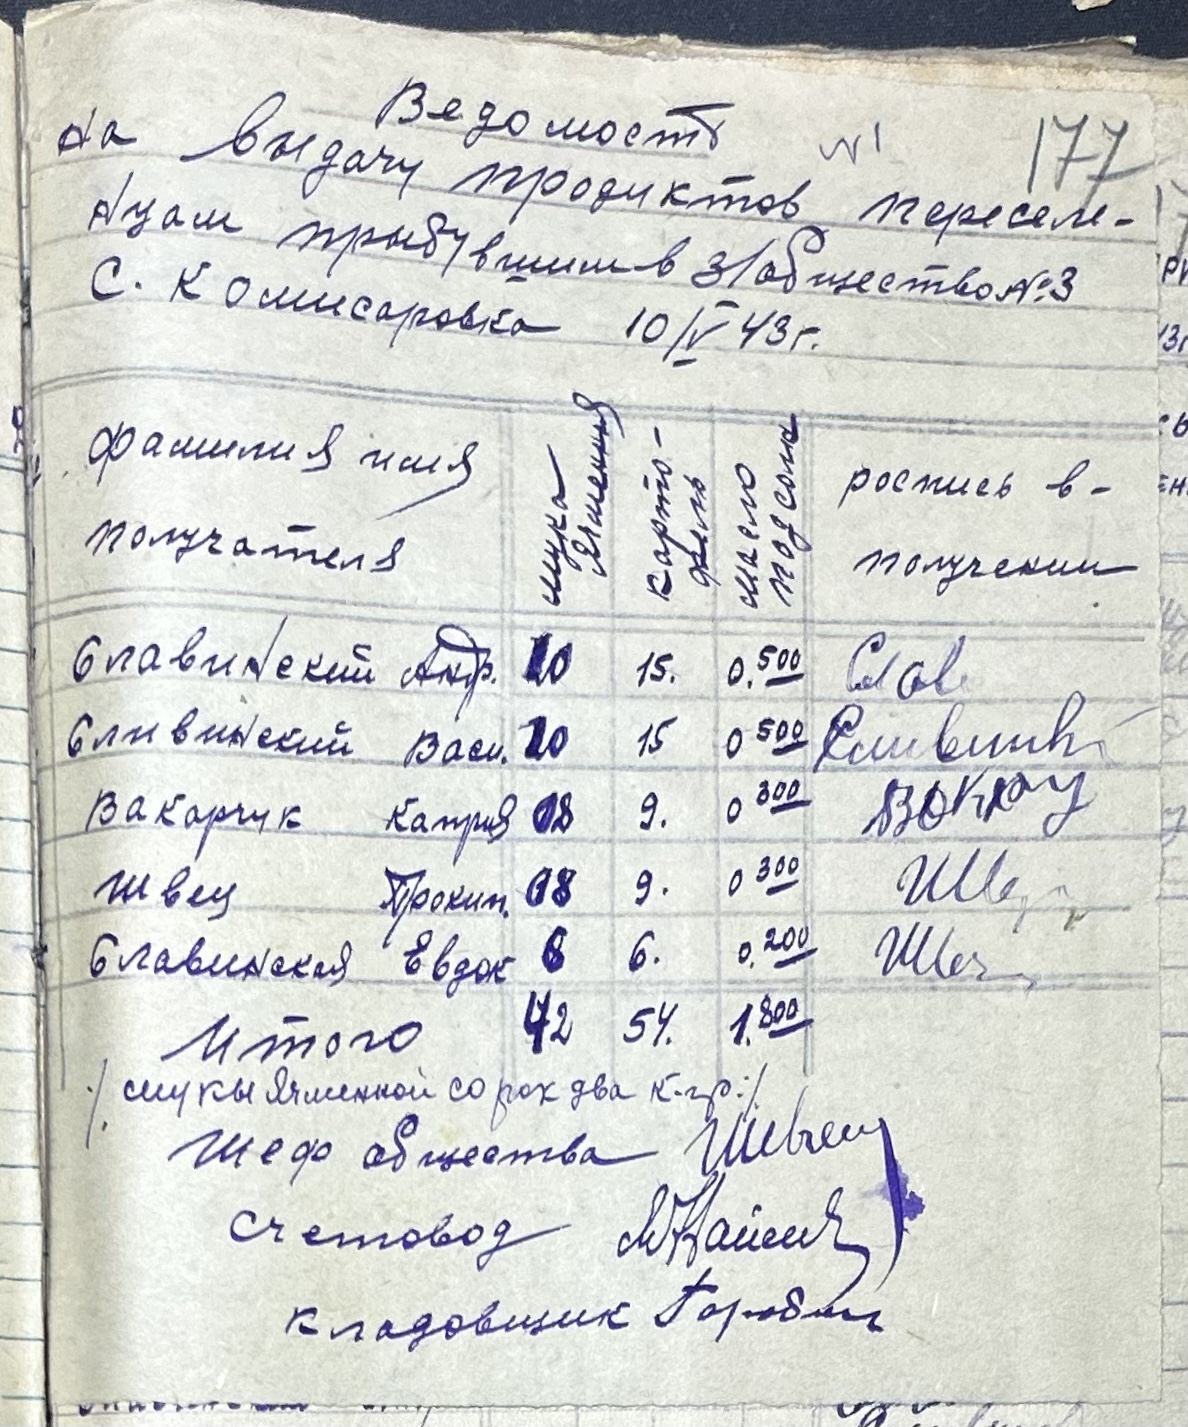 Ведомость №1 177
на выдачу продуктов переселе-
нцам прыбувшим в з/общество №3
С. Комисаровка 10/V 43г.
фамилия имя
получателя
мука ячменния
карто-
фель
масло
подсолн
роспись в-
получении
Славинский Андр. 10 15. 0.500 Слав
Сливинский Васи. 10 15 0 500 Сливинс
Вакарчук Каприя 08 9. 0 300 Вокку
Швец Прокип. 08 9. 0 300 Швец
Славинская Евдок 6 6. 0.200 Швец
Итого 42 54. 1.800
/ муки ячменной сорок два к-гр: /
Шеф общества
Счетовод
кладовщик